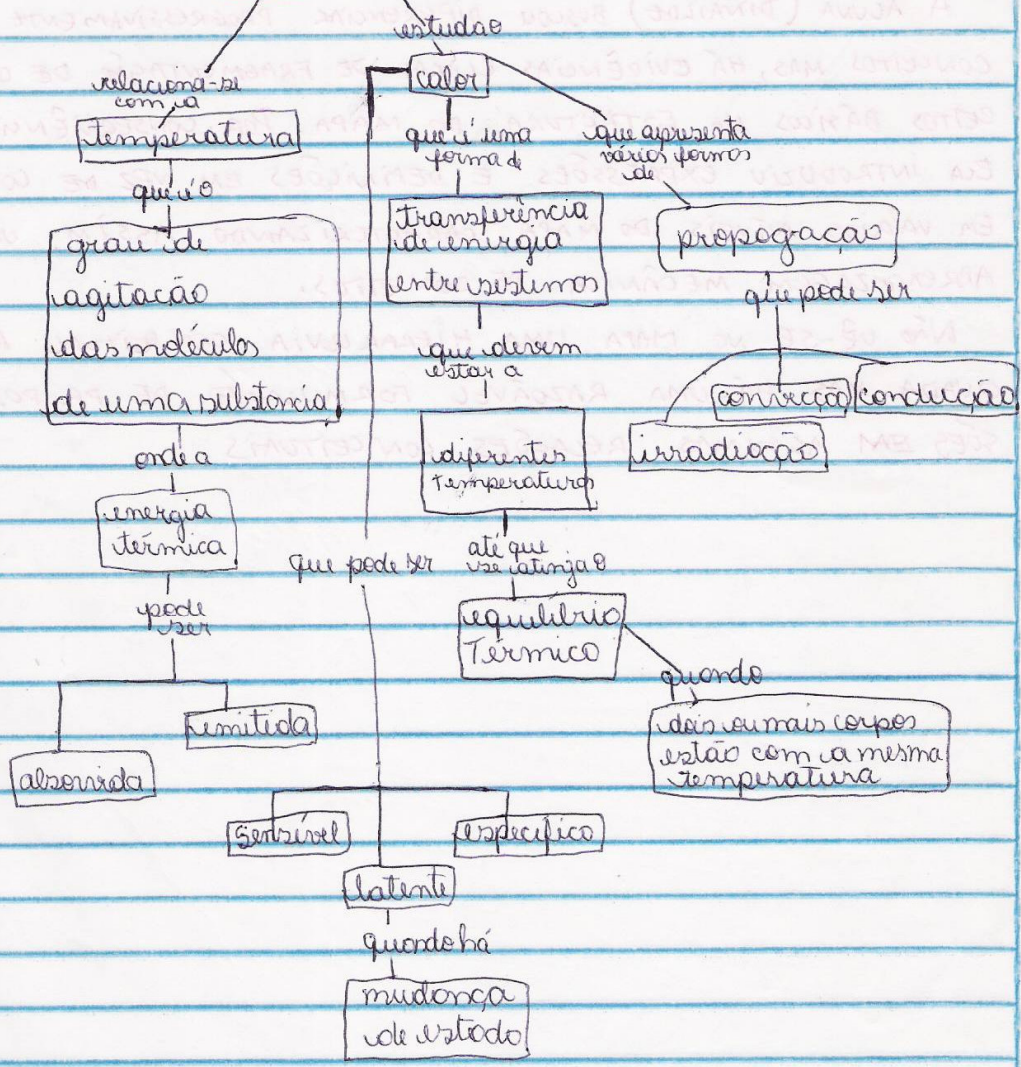 estuda o
relaciona-se
com a
temperatura
que é o
grau de
agitação
das moléculas
de uma substancia
onde a
energia
térmica
pode
ser
emitida
absorvida
calor
que é uma
forma de
transferência
de energia
entre sistemas
que devem
estar a
diferentes
temperaturas
até que
se atinja o
equilíbrio
Térmico
quando
dois ou mais corpos
estão com a mesma
temperatura
que apresenta
várias formas
de
propogação
que pode ser
convecção
condução
irradiação
que pode ser
sensível
específico
latente
quando há
mudança
de estado